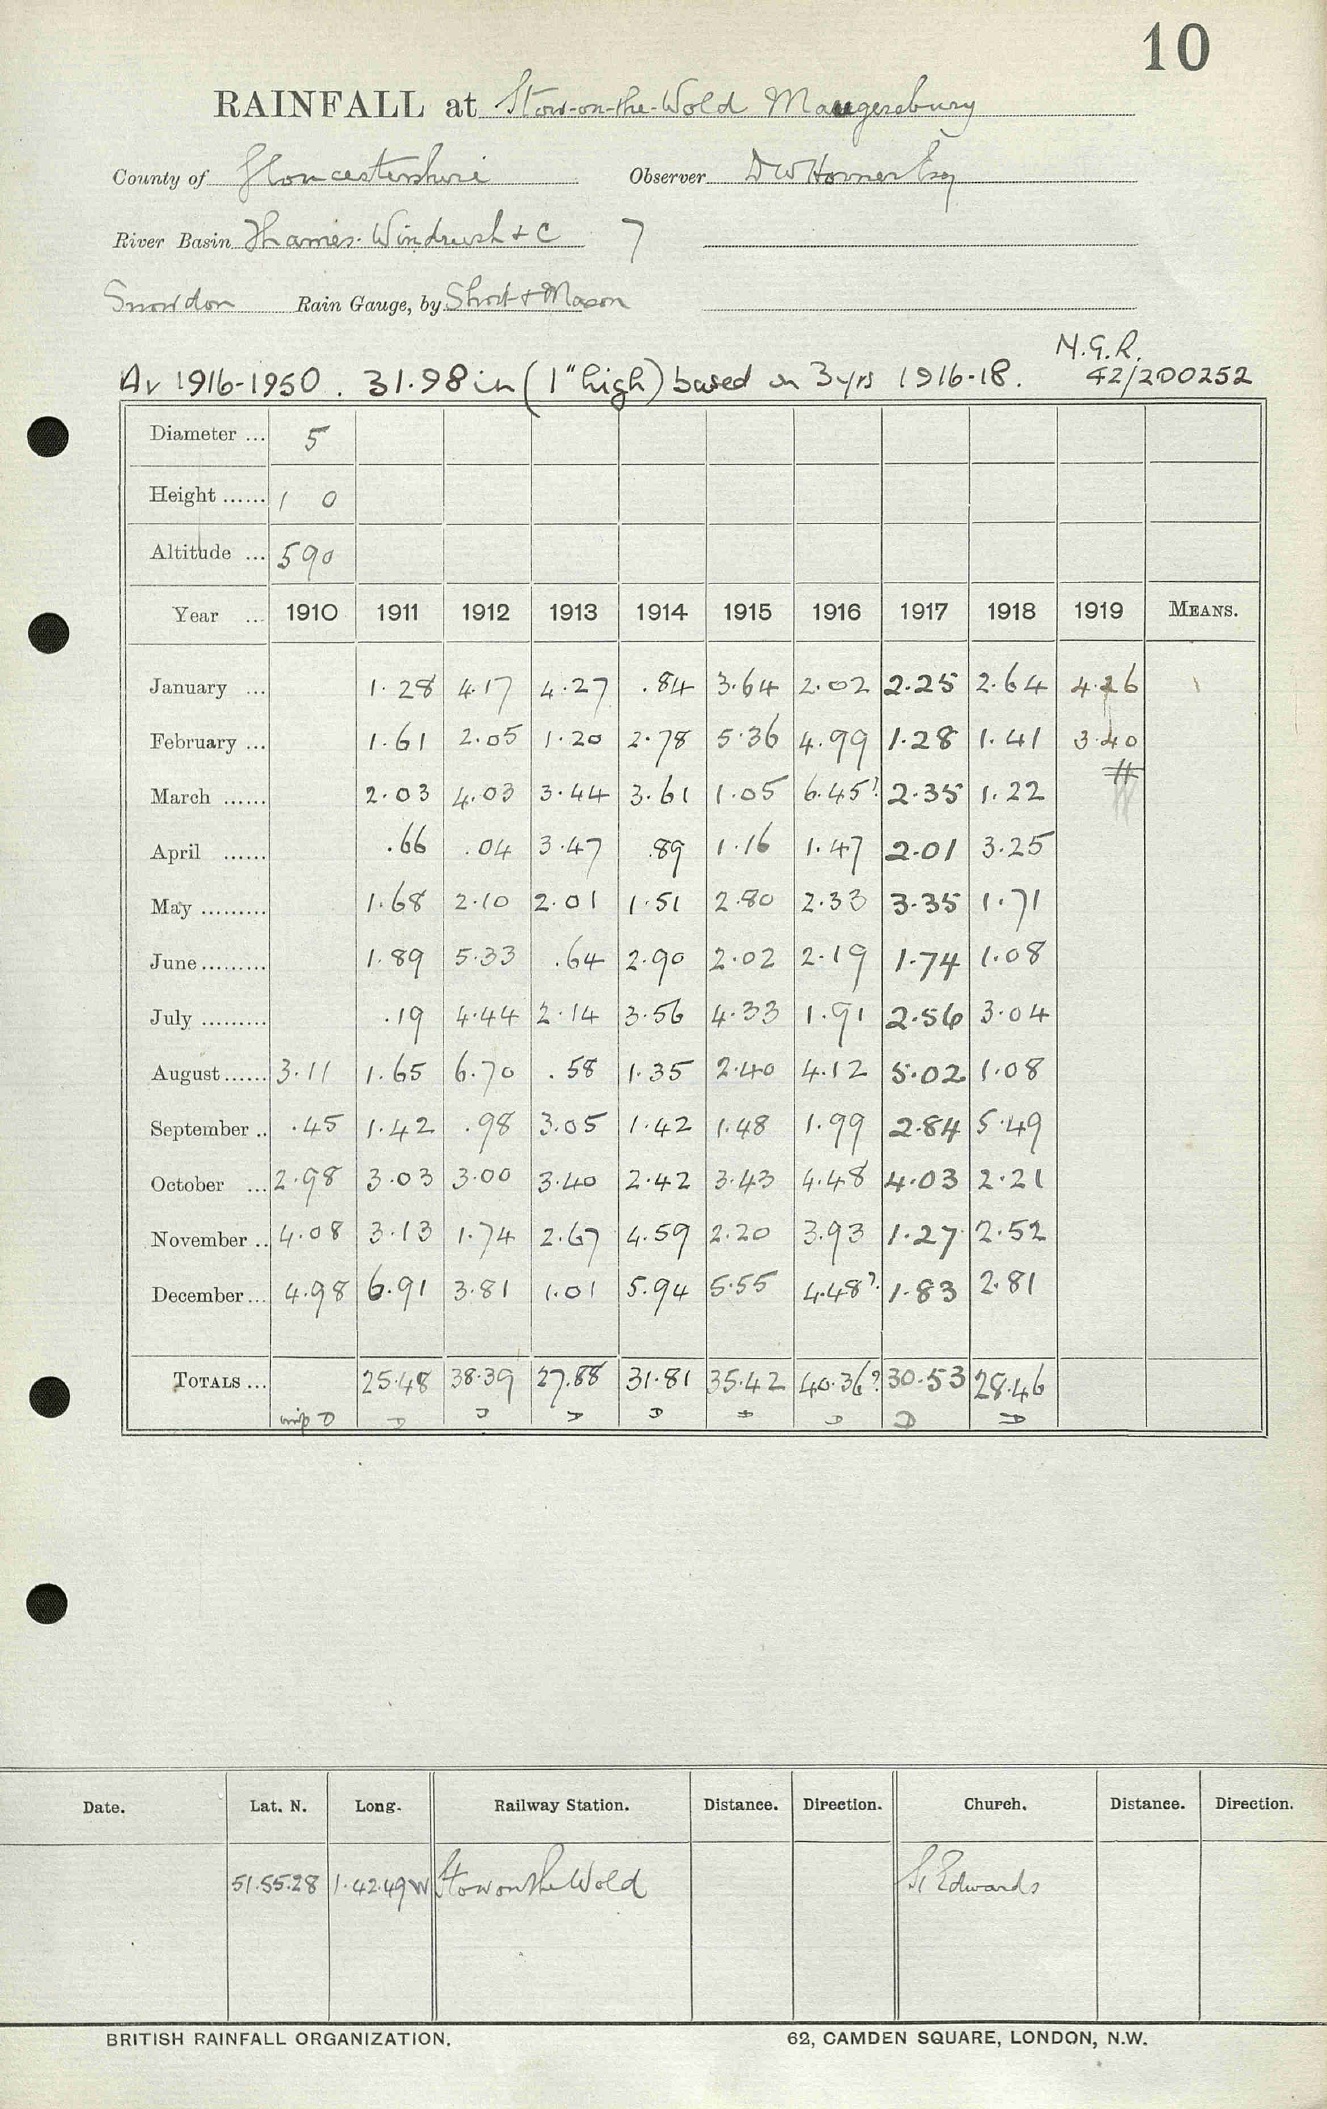 10
RAINFALL at Stow-on-the-Wold Maugersbury
County of Gloucestershire Observer D W Horner Esq
River Basin Thames. Windrush & C 7
Snowdon Rain Gauge, by Short & Mason
N.G.R.
Av 1916-1950. 31.98 in (1" high) based on 3 yrs 1916-18. 42/200252
Diameter ... 5
Height ...... 1 0
Altitude ... 590
Year ... 1910 1911 1912 1913 1914 1915 1916 1917 1918 1919 MEANS.
January ... 1.28 4.17 4.27 .84 3.64 2.02 2.25 2.64 4.26
February ... 1.61 2.05 1.20 2.78 5.36 4.99 1.28 1.41 3.40
March ...... 2.03 4.03 3.44 3.61 1.05 6.45? 2.35 1.22
April ...... .66 .04 3.47 .89 1.16 1.47 2.01 3.25
May ......... 1.68 2.10 2.01 1.51 2.80 2.33 3.35 1.71
June ......... 1.89 5.33 .64 2.90 2.02 2.19 1.74 1.08
July ......... .19 4.44 2.14 3.56 4.33 1.91 2.56 3.04
August ...... 3.11 1.65 6.70 .58 1.35 2.40 4.12 5.02 1.08
September .. .45 1.42 .98 3.05 1.42 1.48 1.99 2.84 5.49
October ... 2.98 3.03 3.00 3.40 2.42 3.43 4.48 4.03 2.21
November .. 4.08 3.13 1.74 2.67 4.59 2.20 3.93 1.27 2.52
December ... 4.98 6.91 3.81 1.01 5.94 5.55 4.48? 1.83 2.81
TOTALS ... 25.48 38.39 27.88 31.81 35.42 40.36? 30.53 28.46
D D D D D D D D
Date. Lat. N. Long. Railway Station. Distance. Direction. Church. Distance. Direction.
51.55.28 1.42.49W Stow on the Wold St Edwards
BRITISH RAINFALL ORGANIZATION. 62, CAMDEN SQUARE, LONDON, N.W.